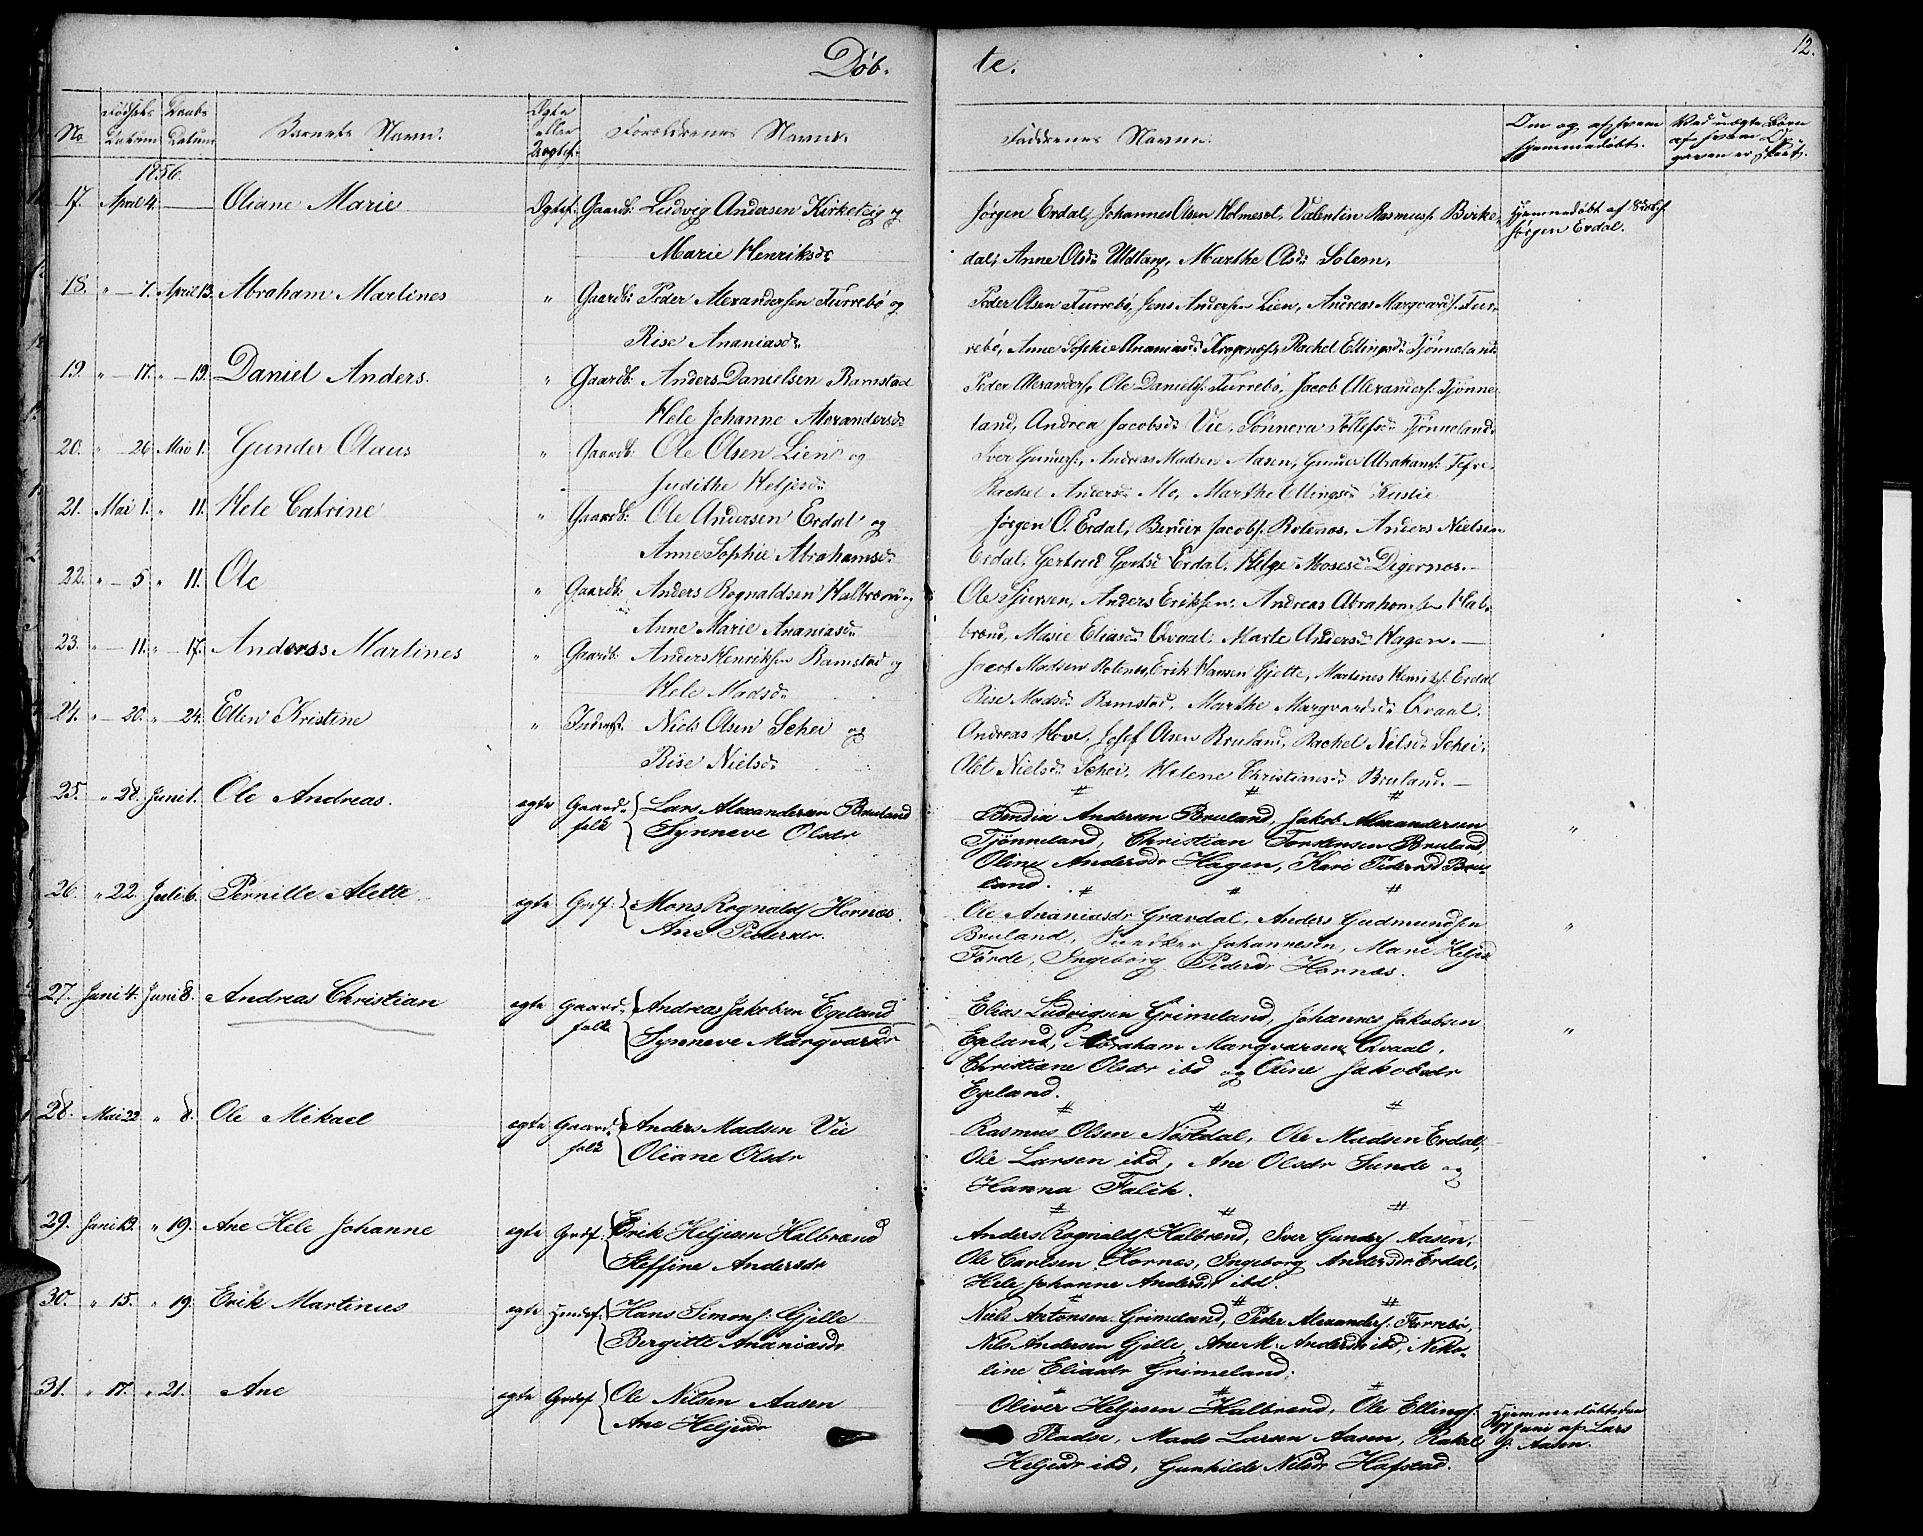 Døb-
te.
12.
No
Fødsels Datum
Daabs Datum
Barnets Navn.
Ægte eller Uægtef.
Forældrenes Navne.
Faddrenes Navne.
Om og af hvem hjemmedøbt.
Ved uægte Børn af hvem Opgaven er skeet.
1856.
17. April 4. — Oliane Marie Ægtef. Gaardb: Ludvig Andersen Kirketeig og
Marie Henriksdr
Jørgen Erdal, Johannes Olsen Holmeset, Valentin Rasmuss: Birke-
dal, Anne Olsdr Udtang, Marthe Olsdr Solem.
Hjemmedøbt af
Jørgen Erdal.
18. " — 7. April 13. Abraham Martines " Gaardb: Peder Alexandersen Furrebø og
Rise Ananiasdr
Peder Olsen Furrebø, Jens Andersen Lien, Andreas Marqvards: Fur-
rebø, Anne Sophie Ananiasdr Rachel Ellingsdr Tjønneland
19. " — 17. " — 19. Daniel Anders. " Gaardb: Anders Danielsen Ramstad
Hele Johanne Alexandersdr
Peder Alexanders, Ole Daniels: Furrebø, Jacob Alexanders: Tjønne-
land, Andrea Jacobsdr Vie, Sønneva Tollefsdr Tjønneland.
20. " 26 Mai 1. Gunder Olaus " Gaardb: Ole Olsen Lien og
Judithe Heljesdr
Iver Gunders:, Andreas Madsen Aasen, Gunder Abrahams:
Rachel Andersdr Mo, Marthe Ellingsdr
21. Mai 1. " 11. Hele Catrine " Gaardb: Ole Andersen Erdal og
Anne Sophie Abrahamsdr
Jørgen O. Erdal, Bendix Jacobs: Rotenæs, Anders Nielsen
Erdal, Gertrud Gertsdr Erdal, Helge Mosesdr Digernæs. —
22. " — 5 " 11. Ole " Gaardb: Anders Rognaldsen Halbrænd og
Anne Marie Ananiasdr
Ole Sjursen, Anders Eriksen, Andreas Abrahamsen Hal-
brænd, Marie Eliasdr Qvaal, Marte Andersdr Hagen. —
23. " — 11. " — 17. Anderss Martines " Gaardb: Anders Henriksen Ramstad og
Hele Madsdr
Jacob Madsen Rotenæs, Erik Hansen Gjelle, Martines Henriks: Erdal
Rise Madsdr Ramstad, Marthe Marqvardsdr Qvaal.
24. " — 20. " — 24. Ellen Kristine " Inderst: Niels Olsen Schei og
Rise Nielsdr
Andreas Hove, Josef Olsen Bruland, Rachel Nilsdr Schei,
Alet Nielsdr Schei, Helene Christiansdr Bruland. —
25. " 28. Juni 1. Ole Andreas. ægte Gaard-
folk Lars Alexandersen Bruland
Synneve Olsdr
Bendix Andersen Bruland, Jakob Alexandersen
Tjønneland, Christian Torstensen Bruland
Oline Andersdr Hagen, Kari Pedersd Bru-
land.
"
26. " 22. Juli 6. Pernille Alette. ægte Grdf: Mons Rognalds Hornæs.
Ane Pedersdr.
Ole Ananiasdr Gravdal, Anders Gudmundsen
Bruland, Johannesen, Mari Heljesd
Førde, Ingeborg Pedersdr Hornæs.
"
27. Juni 4. Juni 8. Andreas Christian ægte Gaard-
folk Andreas Jakobsen Egeland
Synneve Marqvarsdr
Elias Ludvigsen Grimeland, Johannes Jakobsen
Egeland, Abraham Marqvarsen Qvaal,
Christiane Olsdr ibd og Oline Jakobsdr
Egeland.
"
28. Mai 22 " 8. Ole Mikael ægte Gaard-
folk Anders Madsen Vie
Oliane Olsdr
Rasmus Olsen Nøstdal, Ole Madsen Erdal,
Ole Larsen ibd, Ane Olsdr Sunde og
Hanna Falck.
29. Juni 13. " 19. Ane Hele Johanne ægte Grdf: Erik Heljesen Halbrænd
Steffine Andersdr
Anders Rognalds: Halbrænd, Iver Gunders Aasen,
Ole Carlsen Hornæs, Ingeborg Andersdr Erdal,
Hele Johanne Andersdr ibd.
30. " 15. " 19. Erik Martinus ægte Hans Simons: Gjelle
Bergitte Ananiasdr
Niels Antonsen Grimeland, Peder Alexanders: Furrebø,
Nils Andersen Gjelle, Ane M: Andersdr ibd, Niko-
line Eliasdr Grimeland.
31. " 17. " 21. Ane ægte Grdf Ole Nilsen Aasen
Ane Heljesdr
Oliver Heljesen Halbrænd, Ole Ellings:
Pladse, Mads Larsen Aasen, Rakel
Heljesdr ibd, Gunhilde Nilsdr Hafstad.
Hjemmedøbt den
17 Juni af Lars
Aasen.